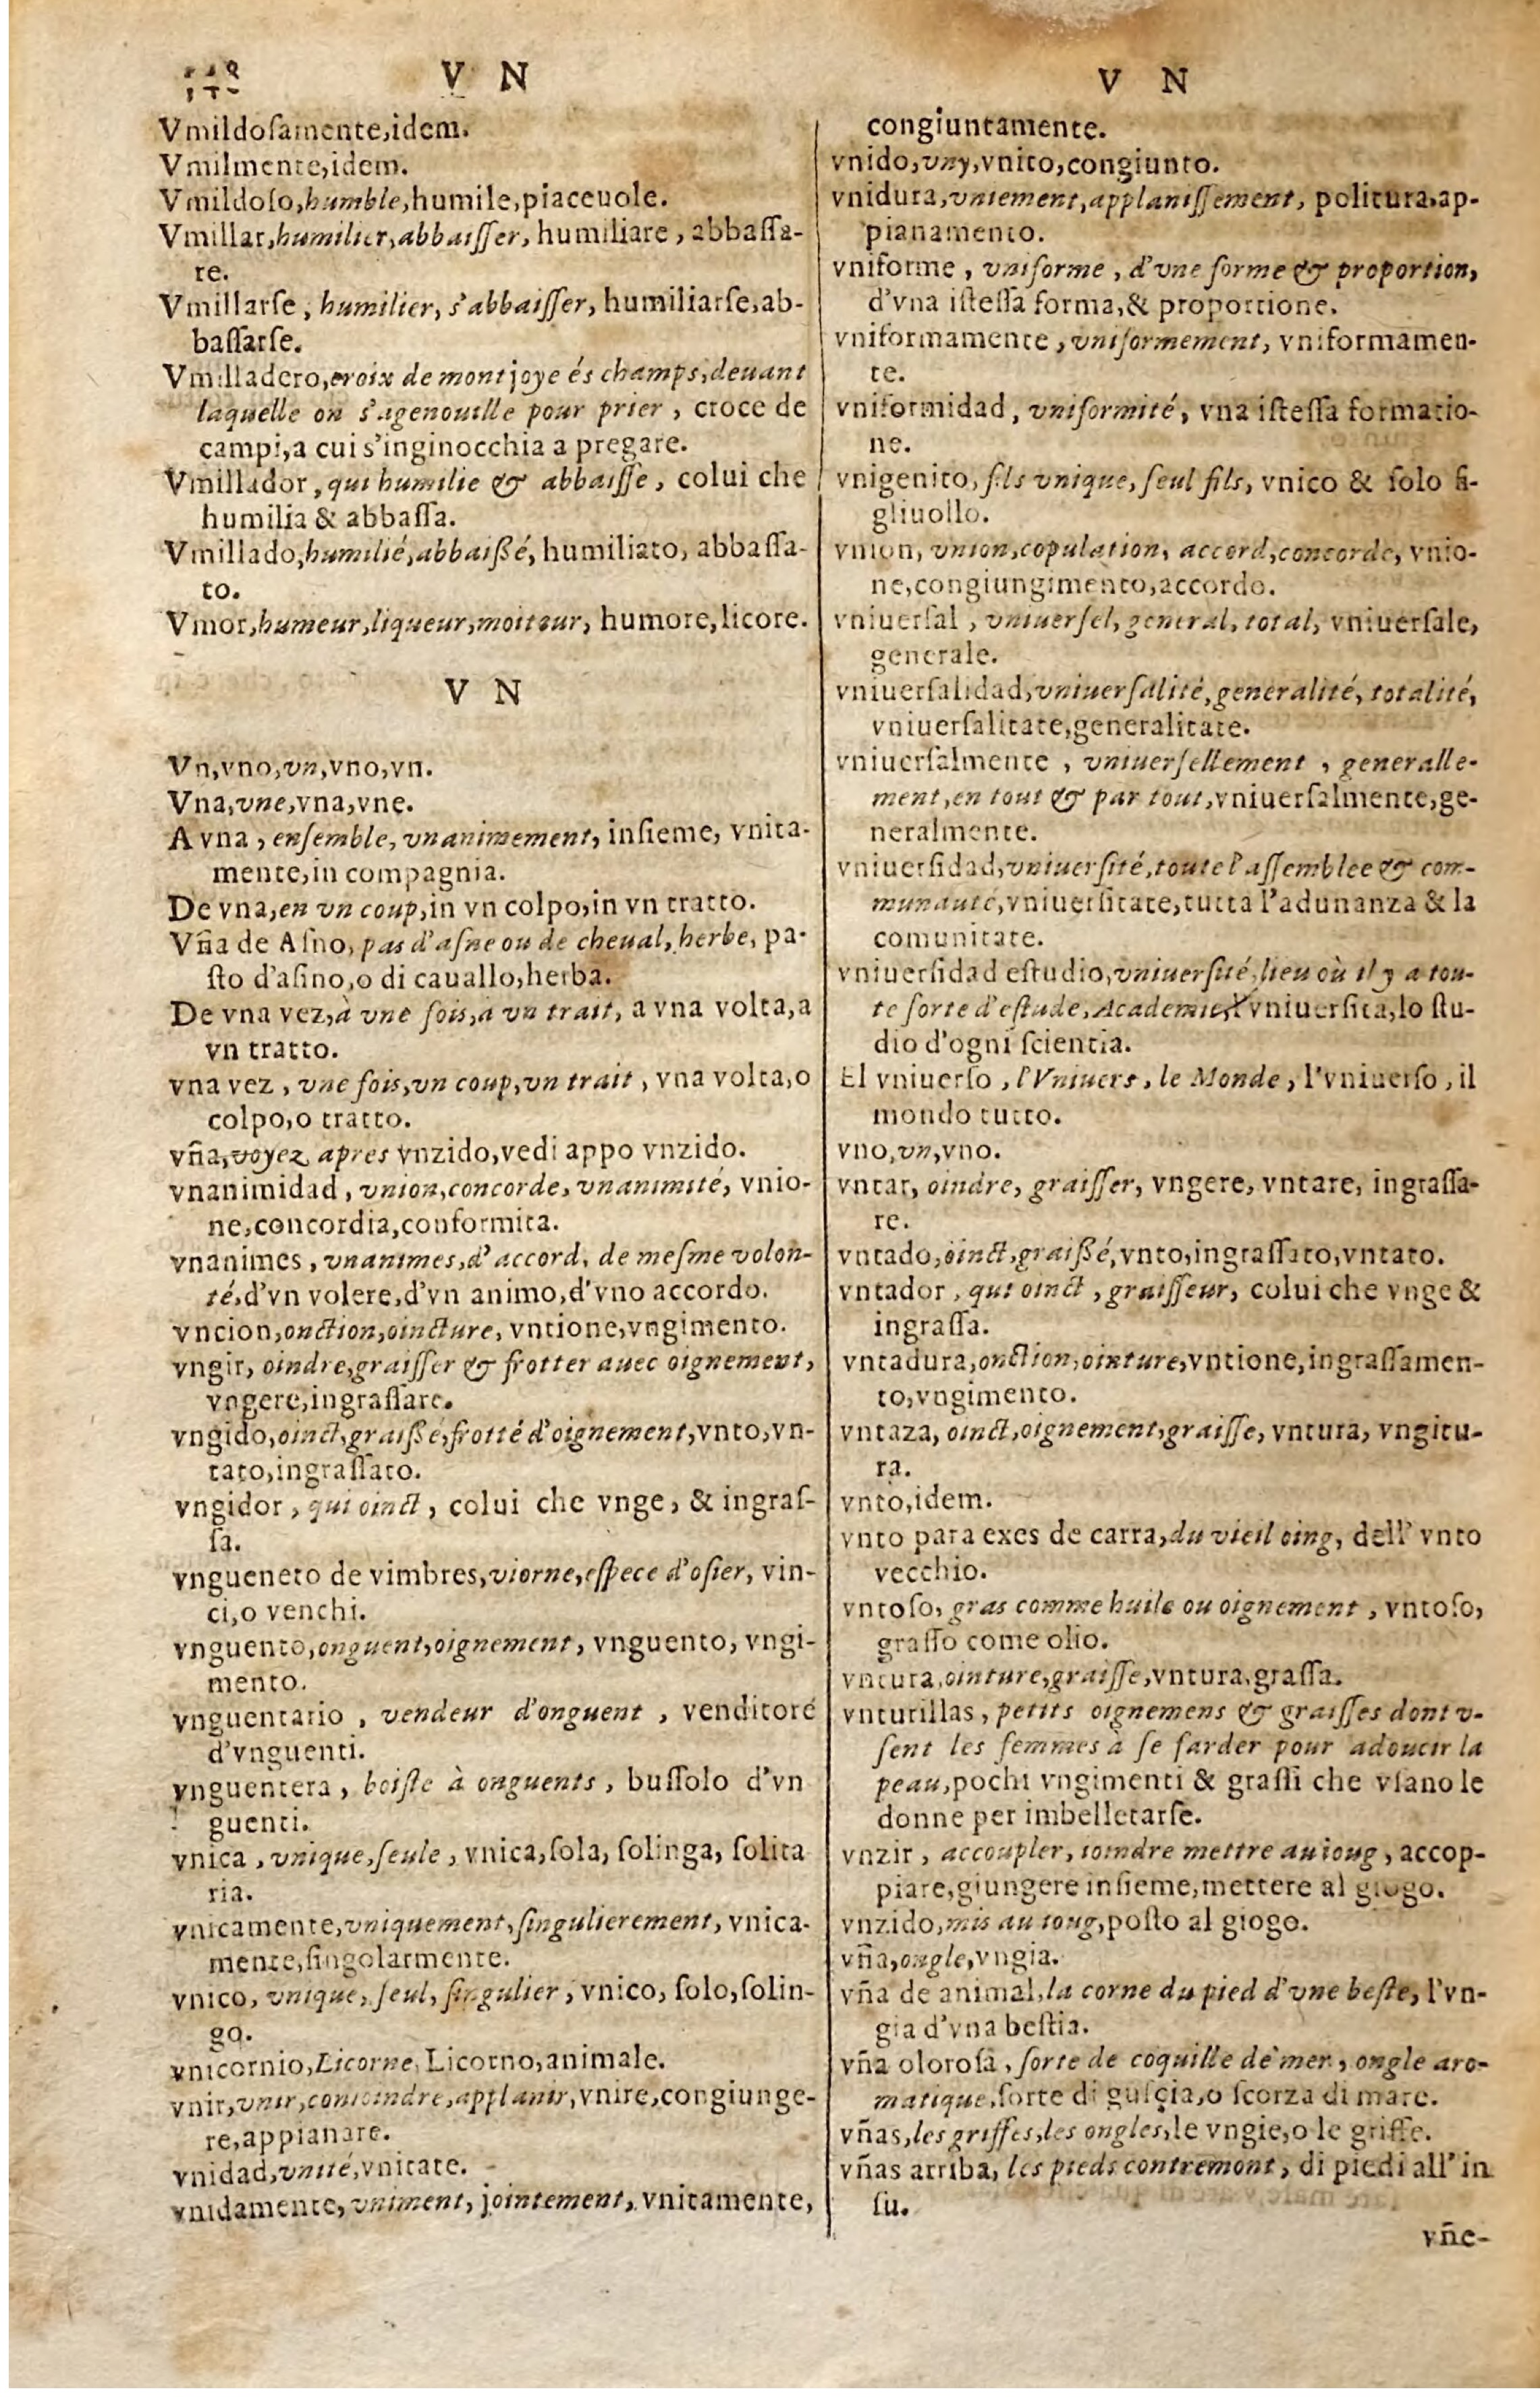 V N
Vmildoſamente,idem.
Vmilmente,idem.
Vmildoſo,humble,humile,piaceuole.
Vmillar,humilier,abbaiſſer, humiliare, abbaſſa-
re.
Vmillarſe, humilier, s'abbaiſſer, humiliarſe,ab-
baſſarſe.
Vmilladero,croix de montjoye és champs,deuant
laquelle on s'agenouille pour prier, croce de
campi,a cui s'inginocchia a pregare.
Vmillador, qui humilie & abbaiſſe, colui che
humilia & abbaſſa.
Vmillado,humilié,abbaißé, humiliato, abbaſſa-
to.
Vmor,humeur,liqueur,moiteur, humore,licore.
V N
Vn,vno,vn,vno,vn.
Vna,vne,vna,vne.
A vna, enſemble, vnanimement, inſieme, vnita-
mente,in compagnia.
De vna,en vn coup,in vn colpo,in vn tratto.
Vña de Aſno, pas d'aſne ou de cheual, herbe, pa-
ſto d'aſino,o di cauallo,herba.
De vna vez,à vne fois,a vn trait, a vna volta,a
vn tratto.
vna vez, vne fois,vn coup,vn trait, vna volta,o
colpo,o tratto.
vña,voyez apres vnzido,vedi appo vnzido.
vnanimidad, vnion,concorde,vnanimité, vnio-
ne,concordia,conformita.
vnanimes, vnanimes,d'accord, de meſme volon-
té,d'vn volere,d'vn animo,d'vno accordo.
vncion,onction,oincture, vntione,vngimento.
vngir, oindre,graiſſer & frotter auec oignement,
vngere,ingraſſare.
vngido,oinct,graißé,frotté d'oignement,vnto,vn-
tato,ingraſſato.
vngidor, qui oinct, colui che vnge, & ingraſ-
ſa.
vngueneto de vimbres,viorne,eſpece d'oſier, vin-
ci,o venchi.
vnguento,onguent,oignement, vnguento, vngi-
mento.
vnguentario, vendeur d'onguent, venditore
d'vnguenti.
vnguentera, boiſte à onguents, buſſolo d'vn
guenti.
vnica, vnique,ſeule, vnica,ſola, ſolinga, ſolita
ria.
vnicamente,vniquement,ſingulierement, vnica-
mente,ſingolarmente.
vnico, vnique, ſeul, ſingulier, vnico, ſolo,ſolin-
go.
vnicornio,Licorne,Licorno,animale.
vnir,vnir,conioindre,applanir,vnire,congiunge-
re,appianare.
vnidad,vnité,vnitate.
vnidamente,vniment, jointement, vnitamente,
V N
congiuntamente.
vnido,vny,vnito,congiunto.
vnidura,vniement,applaniſſement, politura,ap-
pianamento.
vniforme, vniforme, d'vne forme & proportion,
d'vna iſteſſa forma,& proportione.
vniformamente, vniformement, vniformamen-
te.
vniformidad, vniformité, vna iſteſſa formatio-
ne.
vnigenito, fils vnique, ſeul fils, vnico & ſolo fi-
gliuollo.
vnion, vnion,copulation, accord,concorde, vnio-
ne,congiungimento,accordo.
vniuerſal, vniuerſel,general, total, vniuerſale,
generale.
vniuerſalidad,vniuerſalité,generalité, totalité,
vniuerſalitate,generalitate.
vniuerſalmente, vniuerſellement, generalle-
ment,en tout & par tout,vniuerſalmente,ge-
neralmente.
vniuerſidad,vniuerſité,toute l'aſſemblee & com-
munauté,vniuerſitate,tutta l'adunanza & la
comunitate.
vniuerſidad eſtudio,vniuerſité,lieu où il y a tou-
te ſorte d'eſtude, Academie, vniuerſita,lo ſtu-
dio d'ogni ſcientia.
El vniuerſo, l'Vniuers, le Monde, l'vniuerſo, il
mondo tutto.
vno,vn,vno.
vntar, oindre, graiſſer, vngere, vntare, ingraſſa-
re.
vntado,oinct,graißé,vnto,ingraſſato,vntato.
vntador, qui oinct, graiſſeur, colui che vnge &
ingraſſa.
vntadura,onction,ointure,vntione,ingraſſamen-
to,vngimento.
vntaza, oinct,oignement,graiſſe, vntura, vngitu-
ra.
vnto,idem.
vnto para exes de carra,du vieil oing, dell' vnto
vecchio.
vntoſo, gras comme huile ou oignement, vntoſo,
graſſo come olio.
vntura,ointure,graiſſe,vntura,graſſa.
vnturillas, petits oignemens & graiſſes dont v-
ſent les femmes à ſe farder pour adoucir la
peau,pochi vngimenti & graſſi che vſano le
donne per imbelletarſe.
vnzir, accoupler, ioindre mettre au ioug, accop-
piare,giungere inſieme,mettere al giogo.
vnzido,mis au ioug,poſto al giogo.
vña,ongle,vngia.
vña de animal,la corne du pied d'vne beſte, l'vn-
gia d'vna beſtia.
vña oloroſa, ſorte de coquille de mer, ongle aro-
matique,ſorte di guſcia,o ſcorza di mare.
vñas,les griffes,les ongles,le vngie,o le griffe.
vñas arriba, les pieds contremont, di piedi all' in
ſu.
vñe-